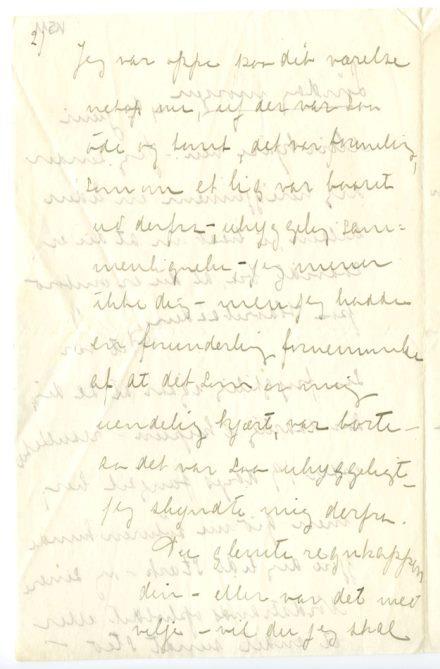 2)
Jeg var oppe paa dit værelse
netop nu, aif der var saa
öde og tomt, det var formelig,
som om et lig var baaret
ud derfra – uhyggelig sam-
menlignelse – jeg mener
ikke dig – men jeg havde
en forunderlig fornemmelse
af at det som er mig
uendelig kjært, var borte –
aa det var saa uhyggeligt –
jeg skyndte mig derfra.
Du glemte regnkappen
din – eller var det med
vilje – vil du jeg skal